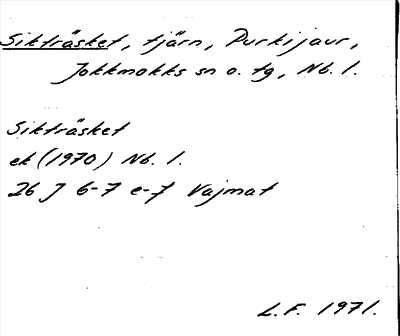 Sikträsket, tjärn, Purkijaur,
Jokkmokks sn o. tg, Nb. l.
Sikträsket
ek (1970) Nb. l.
26 J 6-7 e-f Vajmat
L.F. 1971.